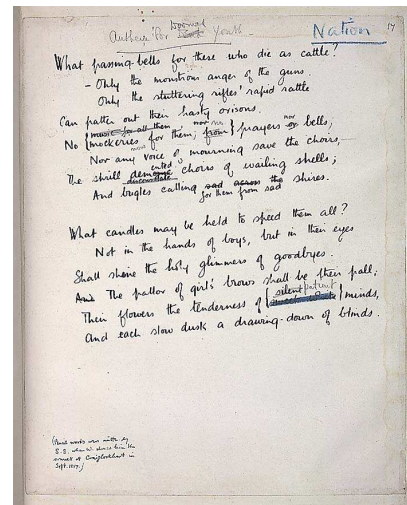 Anthem for Doomed Youth
Nation
What passing-bells for these who die as cattle?
– Only the monstrous anger of the guns.
Only the stuttering rifles' rapid rattle
Can patter out their hasty orisons.
No { music for all them
mockeries for them; nor no from } prayers nor bells,
Nor any voice of mourning save the choirs,
The shrill demented choirs of wailing shells;
And bugles calling sad across the shires.
for them from sad
What candles may be held to speed them all?
Not in the hands of boys, but in their eyes
Shall shine the holy glimmers of goodbyes.
And The pallor of girls' brows shall be their pall;
Their flowers the tenderness of { silent patient } minds,
And each slow dusk a drawing-down of blinds.
(Pencil words were written by
S.S. when we showed him the
sonnet at Craiglockhart in
Sept. 1917.)